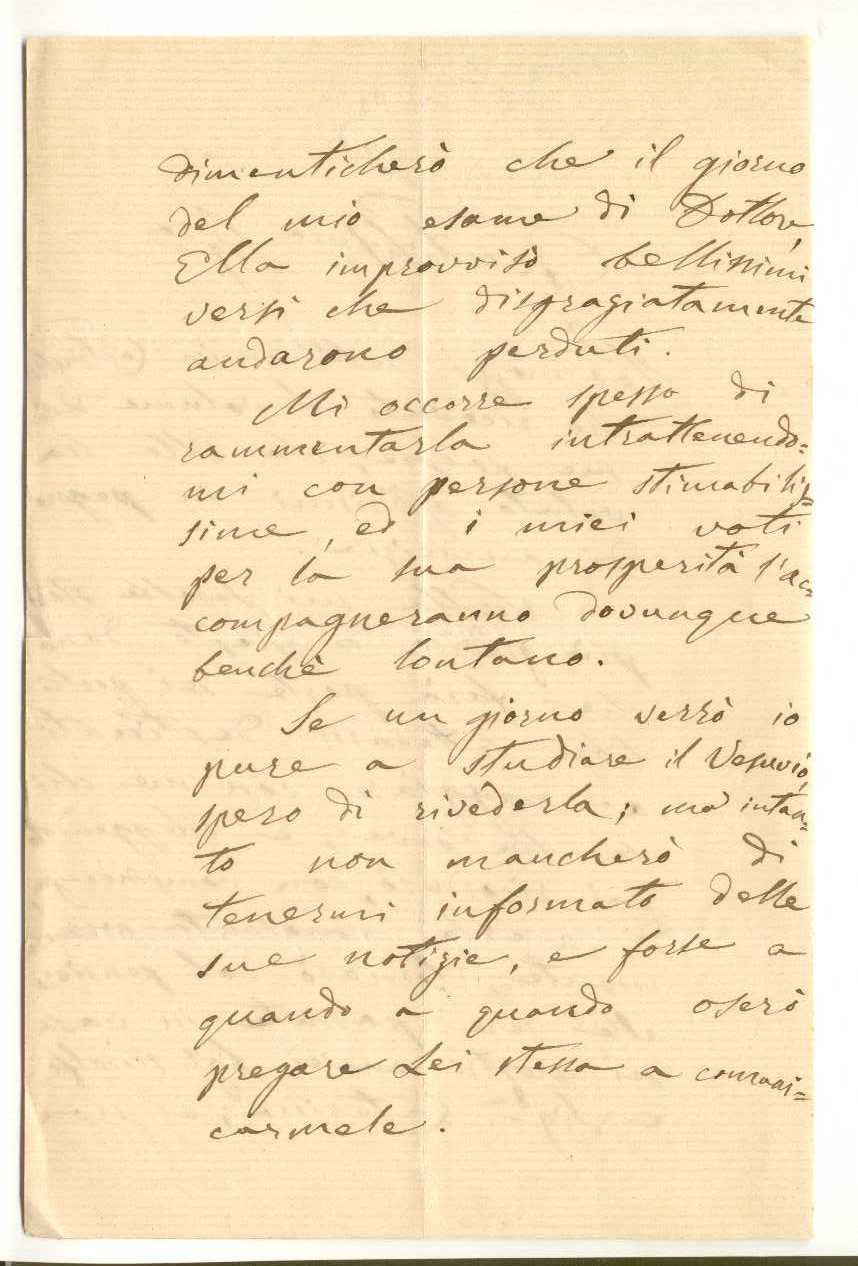 dimenticherò che il giorno
del mio esame di Dottore,
Ella improvvisò bellissimi
versi che disgragiatamente
andarono perduti.
Mi occorre spesso di
rammentarla intrattenendo=
mi con persone stimabilis=
sime, ed i miei voti
per la sua prosperità l'ac=
compagneranno dovunque
benchè lontano.
Se un giorno verrò io
pure a studiare il Vesuvio,
spero di rivederla; ma intan=
to non mancherò di
tenermi informato delle
sue notizie, e forse a
quando a quando oserò
pregare Lei stessa a comuni=
carmele.